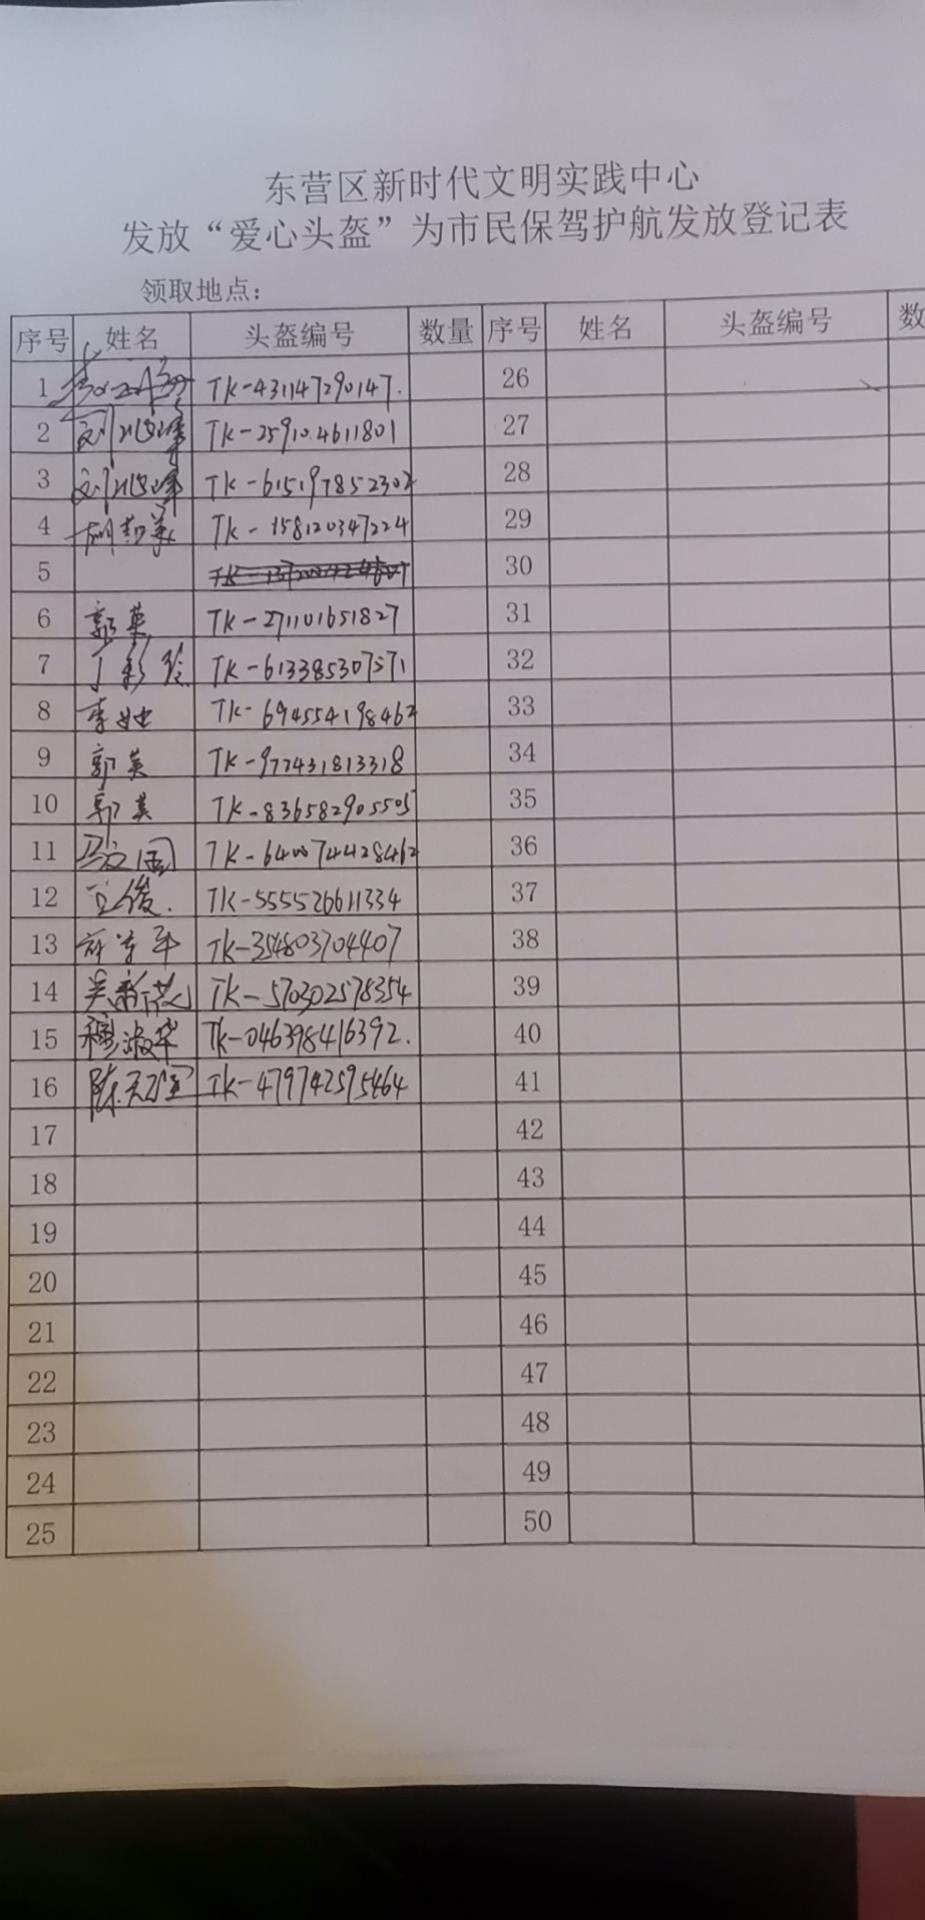 东营区新时代文明实践中心
发放“爱心头盔”为市民保驾护航发放登记表
领取地点：
序号 姓名 头盔编号 数量 序号 姓名 头盔编号 数
1 TK-431147290147. 26
2 TK-259104611801 27
3 TK-615197852302 28
4 TK-158120347224 29
5 30
6 郭英 TK-271101651827 31
7 丁彩玲 TK-613385307571 32
8 李 TK-694554198462 33
9 郭英 TK-977431813318 34
10 郭英 TK-836582905505 35
11 国 TK-640074428462 36
12 俊. TK-555526611334 37
13 TK-354803704407 38
14 吴新 TK-570302578354 39
15 穆淑华 TK-046398416392. 40
16 陈 TK-479742595464 41
17 42
18 43
19 44
20 45
21 46
22 47
23 48
24 49
25 50